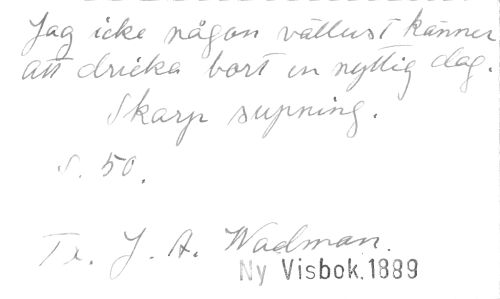 Jag icke någon vällust känner
att dricka bort en nyttig dag.
Skarp supning.
S. 50.
Tx. J. A. Wadman.
Ny Visbok.1889